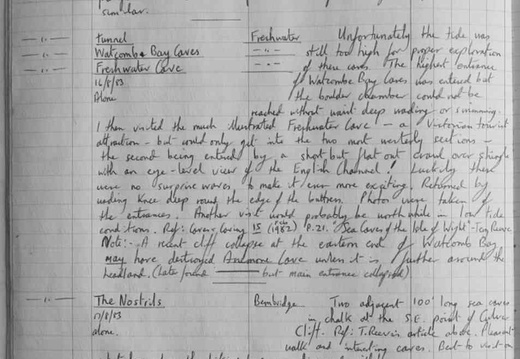 similar.
-"- Tunnel Freshwater Unfortunately the tide was
-"- Watcombe Bay Caves -"- still too high for proper exploration
-"- Freshwater Cave -"- of these caves. The highest entrance
16/8/83 of Watcombe Bay Caves was entered but
Alone the boulder chamber could not be
reached without waist deep wading or swimming.
I then visited the much illustrated Freshwater Cave - a Victorian tourist
attraction - but could only get into the two most westerly sections -
the second being entered by a short but flat out crawl over shingle
with an eye-level view of the English Channel! Luckily there
were no surprise waves to make it even more exciting. Returned by
wading knee deep round the edge of the buttress. Photos were taken of
the entrances. Another visit would probably be worth while in low tide
conditions. Ref: Caves & Caving 15 (Feb 1982) P.21. 'Sea Caves of the Isle of Wight' - Terry Reeve
Note:- A recent cliff collapse at the eastern end of Watcombe Bay
may have destroyed cave unless it is further around the
headland. (Later found but main entrance collapsed)
-"- The Nostrils Bembridge Two adjacent 100' long sea caves
17/8/83 in chalk at the S.E. point of Culver
alone. Cliff. Ref: T. Reeve in article above. Pleasant
walk and interesting caves. Best to visit on